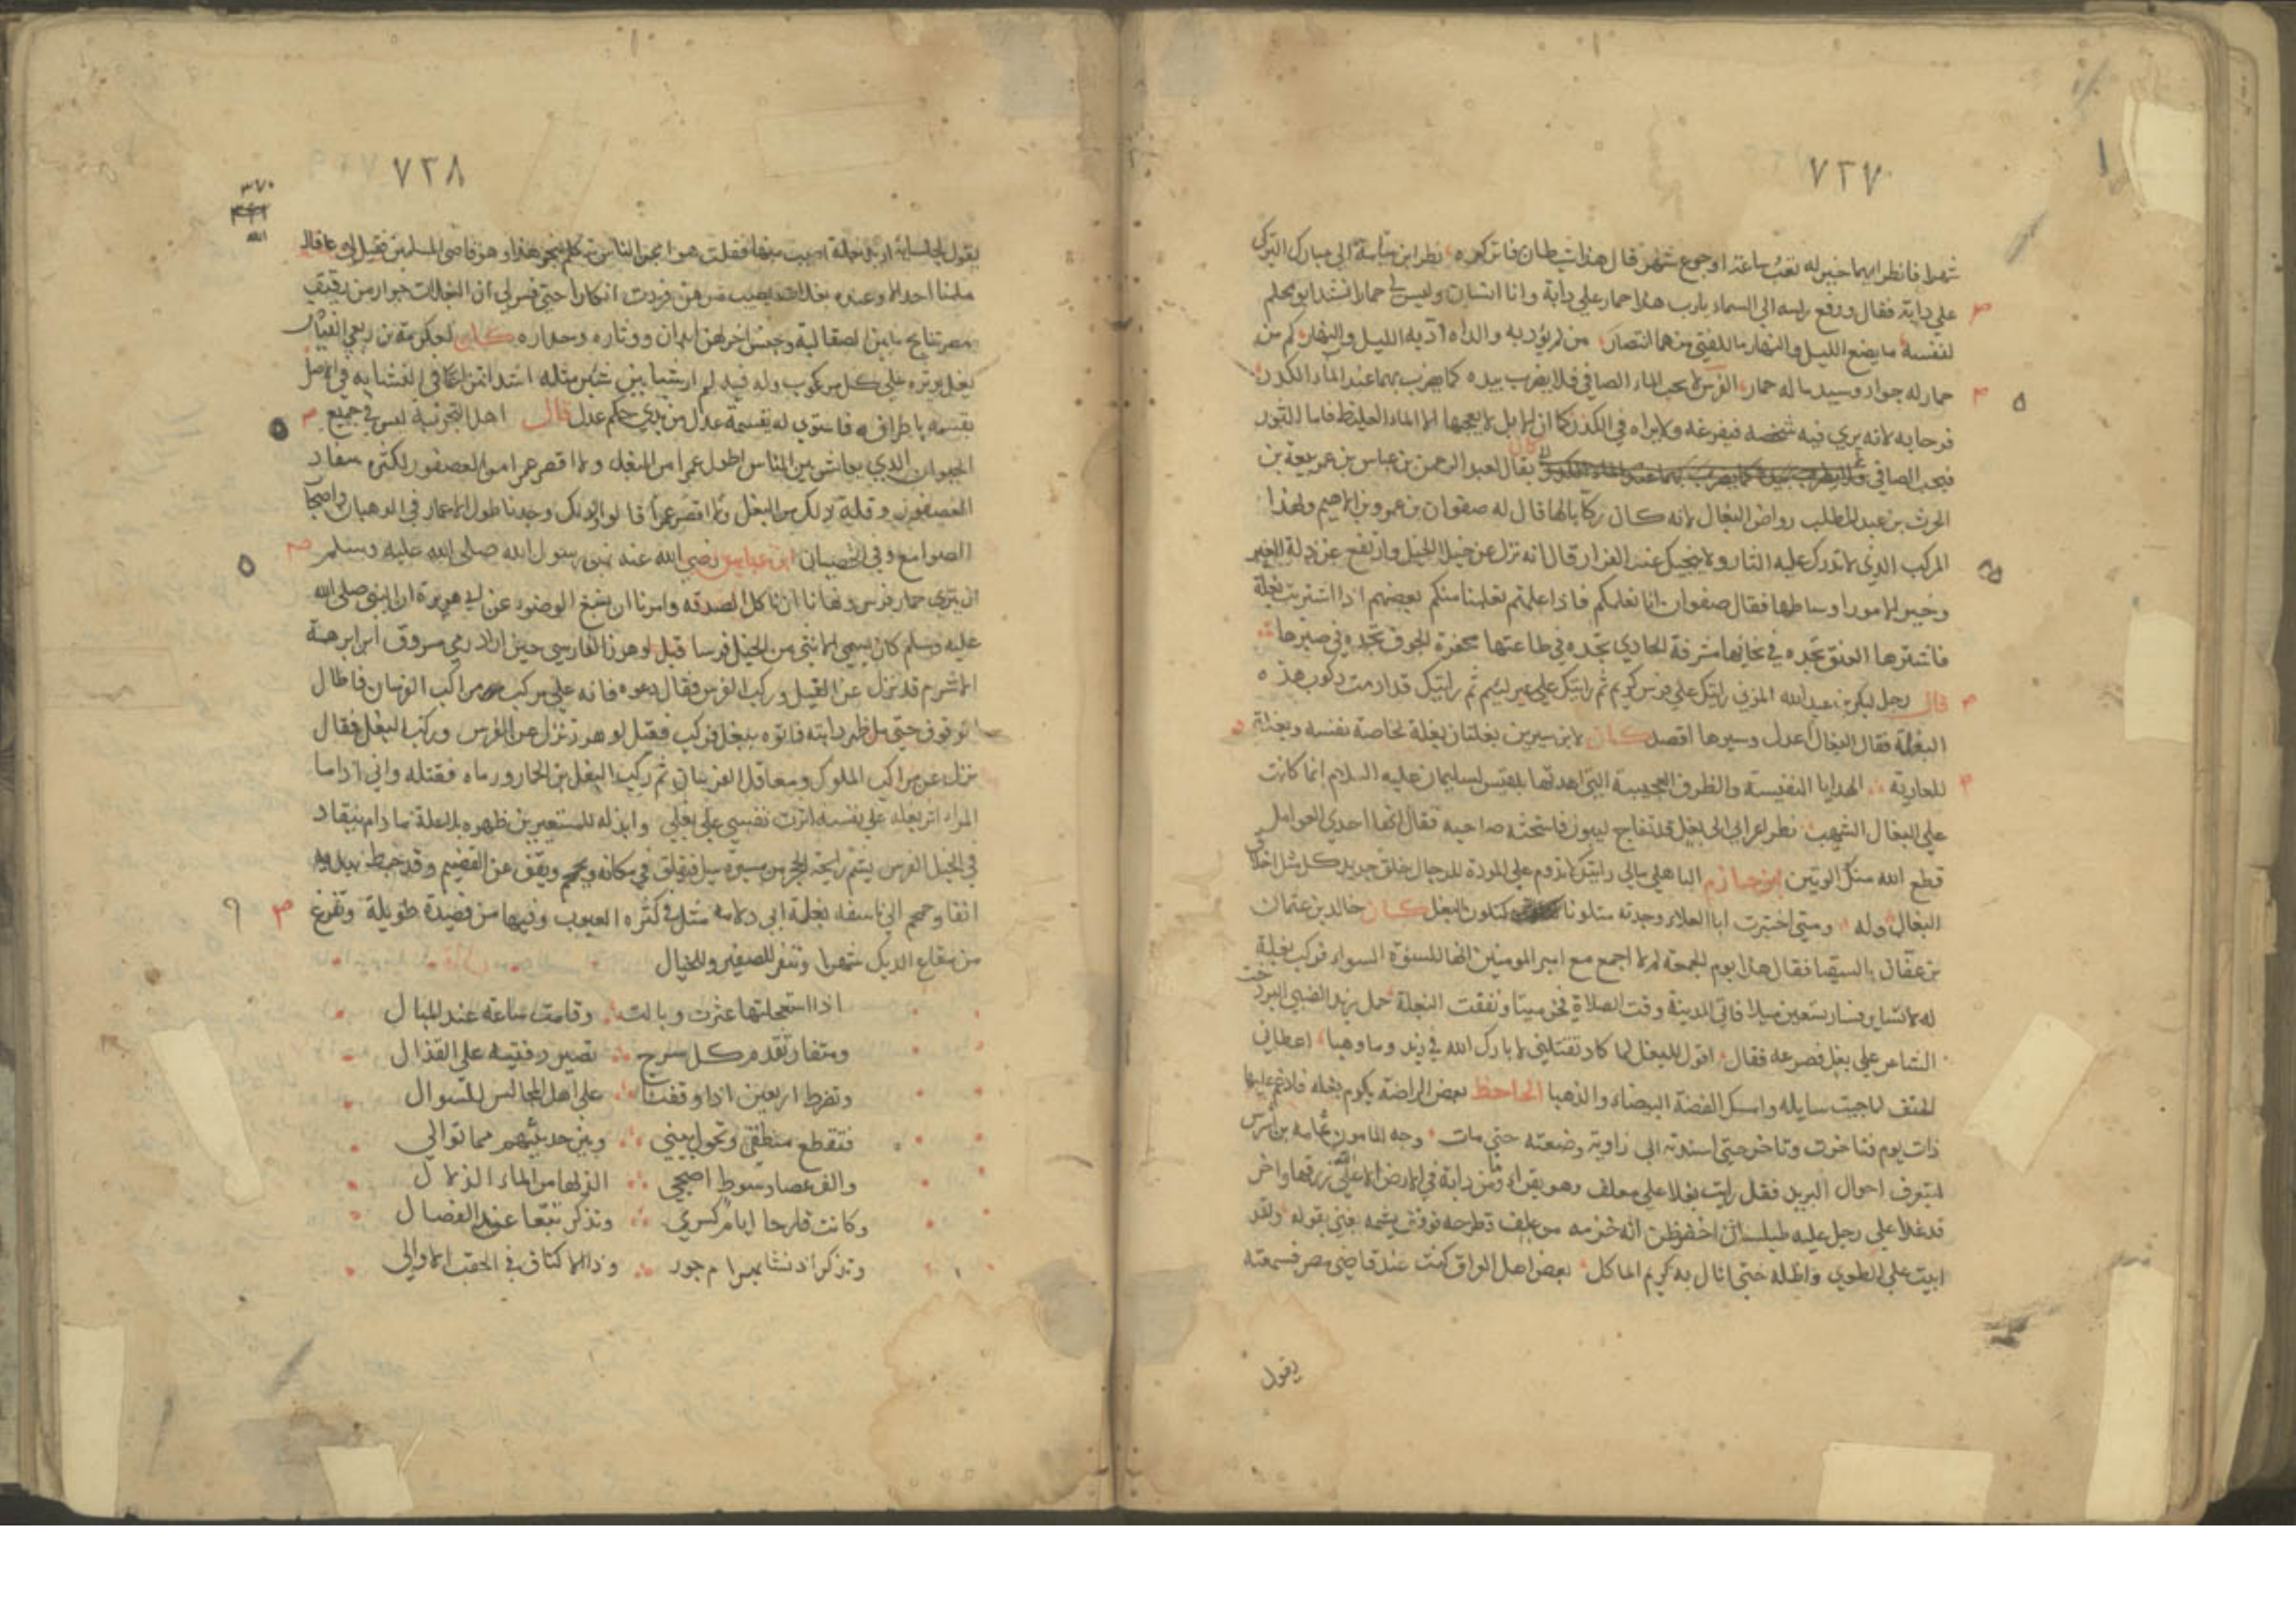 ٧٣٧
شهرا فانظر ايهما خير له تعب ساعة او جوع شهر قال هذا شيطان فاتركوه نظر ابن سيابة الى مبارك التركي
على دابة فقال ورفع راسه الى السماء يارب هذا حمار على دابة وانا انسان وليس لي حمار انشد ابو محلم
لنفسه ما يصنع الليل والنهار ما للفتى منهما انتصار من لم يؤدبه والداه ادبه الليل والنهار كم من
حمار له جواد وسيد ما له حمار الفرس لا يحب الماء الصافي فلا يضرب بيده كما يضرب بهما عند الماء الكدر
فرحا به لانه يرى فيه شخصه فيفزعه ولا يراه في الكدر كما ان الابل لا يعجبها الا الماء الغليظ فاما الثور
فيحب الصافي كان يقال لعبد الرحمن بن عباس بن ربيعة بن
الحرث بن عبد المطلب رواض البغال لانه كان ركابا لها قال له صفوان بن عمرو بن الاهيم ولهذا
المركب الذي لا تدرك عليه الثار ولا ينجيك عند الفرار قال انه نزل عن خيلا الخيل وارتفع عن ذلة العير
وخير الامور اوساطها فقال صفوان انا نعلمكم فاذا علمتم تعلمنا منكم بعضهم اذا اشتريت بغلة
فاشترها العنق تجده في نجائها مشرفة الهادي تجده في طاعتها مجفرة الجوف تجده في صبرها
قال رجل لبكر بن عبد الله المزني رايتك على فرس كريم ثم رايتك على عير لئيم ثم رايتك قد ادمت ركوب هذه
البغلة فقال البغال اعدل وسيرها اقصد كان لابن سيرين بغلتان بغلة لخاصة نفسه وبغلة
للعارية الهدايا النفيسة والطرف العجيبة التي اهدتها بلقيس لسليمان عليه السلام انما كانت
على البغال الشهب نظر اعرابي الى بغل قد تفاج ليبول فاستحثه صاحبه فقال انها احدى الغوائل
قطع الله منك الوتين ابن حازم الباهلي مالي رايتك لا تدوم على المودة للرجال خلق جديد كل مثل اخلاق
البغال وله ومتى اختبرت ابا العلاء وجدته متلونا كتلون البغل كان خالد بن عثمان
بن عفان بالسقيا فقال هذا يوم الجمعة لم لا اجمع مع امير المؤمنين انها للسنوة السواء فركب بغلة
له لا تساير فسار سبعين ميلا فاتى المدينة وقت الصلاة فخر ميتا ونفقت البغلة حمل يزيد الضبي البردخت
الشاعر على بغل فصرعه فقال اقول للبغل لما كاد تقتلني لا بارك الله في يزيد وما وهبا اعطاني
الحتف لما جيت سايله وامسك الفضة البيضاء والذهبا الجاحظ بعض الراضة يكوم بغله فلاغم عليها
ذات يوم فتاخرت وتاخر حتى اسندته الى زاوية وضغته حتى مات وجه المامون ثمامة بن اشرس
ليتعرف احوال البريد فقل رايت بغلا على معلف وهو يقرا وما من دابة في الارض الا على الله رزقها واخر
قد غلا على رجل عليه طيلسان اخضر ظن انه خزمه من علف فطرحه فوقف يشمه يغني بقوله ولقد
ابيت على الطوى واظله حتى انال به كريم الماكل بعض اهل العراق كنت عند قاضي مصر فسمعته
يقول
٧٣٨
٣٧٠
يقول لجلسايه اريد بغلة اصيب منها فقلت هوا يجوز الناس تتكلم بنحو هذا وهو قاضي المسلمين فقيل لي وما قال
ملنا احد الا وعنده بغلات يصيب منهن فزدت انكارا حتى فسر لي ان البغلات جوار من رقيق
مصر تنايج ما بين الصقالبة وجنس اخر لهن ابدان ووثاره وحداره كان لعكرمة بن ربعي الفياض
بغل يوثره على كل مركوب وله فيه لم ار شيا بين شين مثله اشد اتزاعا في التشابه في الاصل
يقسمه باطرافه فاستوى له يقسمة عدل من يدي حكم عدل قال اهل التجربة ليس في جميع
الحيوان الذي يعايش بين الناس اطول عمرا من البغل ولا اقصر عمرا من العصفور لكثرة سفاد
العصفور وقلة ذلك من البغل ولا اقصر عمرا قالوا ولذلك وجدنا طول الاعمار في الرهبان واصحاب
الصوامع وفي الخصيان ابن عباس رضي الله عنه نهى رسول الله صلى الله عليه وسلم
ان ينزى حمار فرس ونهانا ان ناكل الصدقة وامرنا ان نسبغ الوضوء عن ابي هريرة ان النبي صلى الله
عليه وسلم كان يسمي الانثى من الخيل فرسا قيل لوهرز الفارسي حين اراد رمي مسروق ابن ابرهة
الاشرم قد نزل عن الفيل وركب الفرس فقال دعوه فانه على مركب من مراكب الفرسان فاطال
الوقوف حتى مل ظهر دابته فاتوه ببغل فركب فقيل لوهرز نزل عن الفرس وركب البغل فقال
نزل عن مراكب الملوك ومعاقل الفرسان ثم ركب البغل بن الحار ورماه فقتله واني اذا ما
المراد اثر بغله على نفسه اثرت نفسي على بغلي وابذله للمستعيرين ظهره بلا علة ما دام ينقاد
في الحبل الفرس يشم رايحة الحجر من مسيرة ميل فيقلق في مكانه ويحمحم ويقف عن القضيم وقد خبط بيديه
انفا وحمحم الى ناسفه بغلة ابي دلامه مثل في كثرة العيوب وفيها من قصيدة طويلة وتفزع
من صقاع الديك شهرا وتنفر للصفير وللخيال
اذا استعجلتها عثرت وبالت وقامت ساعة عند المبال
ومثفار تقدم كل سرج تصير دفتيه على القذال
وتضرط اربعين اذا وقفنا على اهل المجالس للسوال
فتقطع منطقي وتحول بيني وبين حديثهم مما توالي
والف عصا وسوط اصبحي الذ لها من الماء الزلال
وكانت قارحا ايام كسرى وتذكر تبعا عند الفصال
وتذكر اذ نشا بهرام جور وذا الاكتاف في الحقب الاوالي